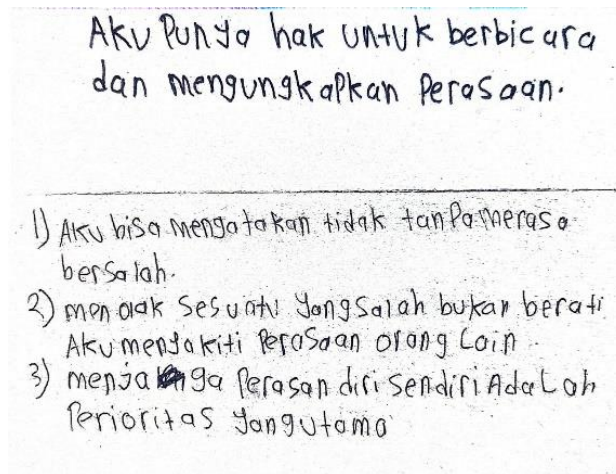 Aku Punya hak untuk berbicara
dan mengungkapkan Perasaan.
1) Aku bisa mengatakan tidak tanpa merasa
bersalah.
2) menolak Sesuatu Yang Salah bukan berati
Aku menyakiti Perasaan orang Lain
3) menjaga Perasan diri sendiri AdaLah
Perioritas Yang Utama